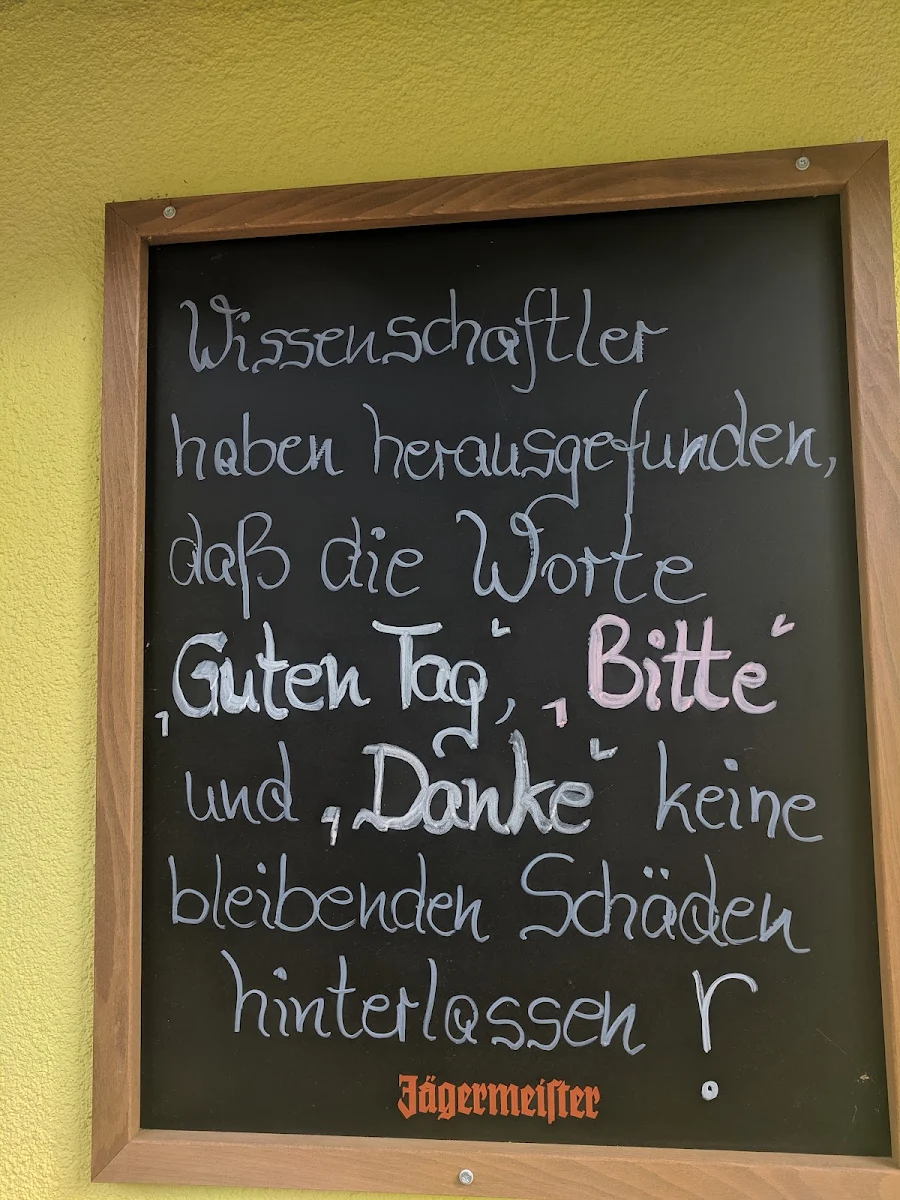 Wissenschaftler
haben herausgefunden,
daß die Worte
„Guten Tag“, „Bitte“
und „Danke“ keine
bleibenden Schäden
hinterlassen !
Jägermeiſter